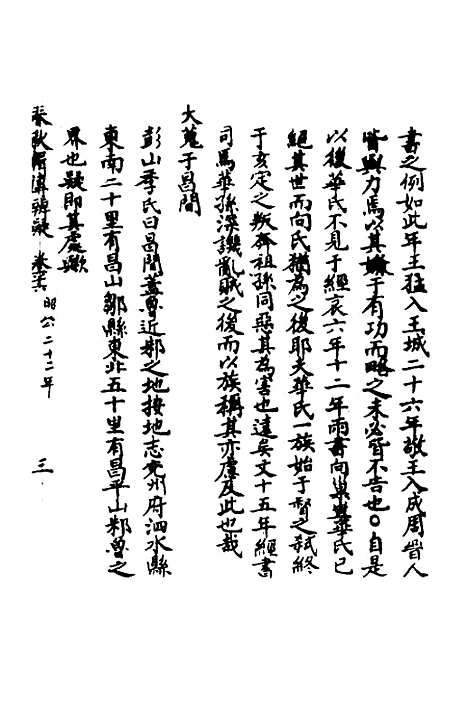 書之例如此年王猛入王城二十六年敬王入成周晉人
皆與力焉以其嫌于有功而略之未必皆不告也○自是
以後華氏不見于經哀六年十二年兩書向巢華氏已
絕其世而向氏猶為之後耶夫華氏一族始于督之弒終
于亥定之叛奔祖孫同惡其為害也遠矣文十五年經書
司馬華孫深譏亂賊之後而以族稱其亦慮及此也哉
大蒐于昌間
彭山季氏曰昌間蓋魯近邾之地按地志兗州府泗水縣
東南二十里有昌山鄒縣東北五十里有昌平山邾魯之
界也疑即其處歟
春秋 辨疑 卷 昭公二十二年 三